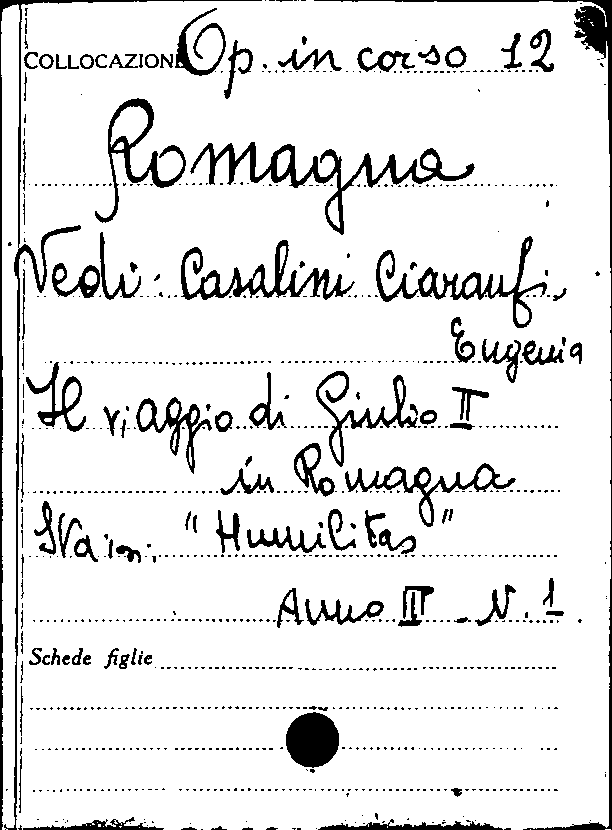 COLLOCAZIONE Op. in corso 12
Romagna
Vedi: Casalini Ciaranfi,
Eugenia
Il viaggio di Giulio II
in Romagna
"Humilitas"
Anno III - N. 1.
Schede figlie